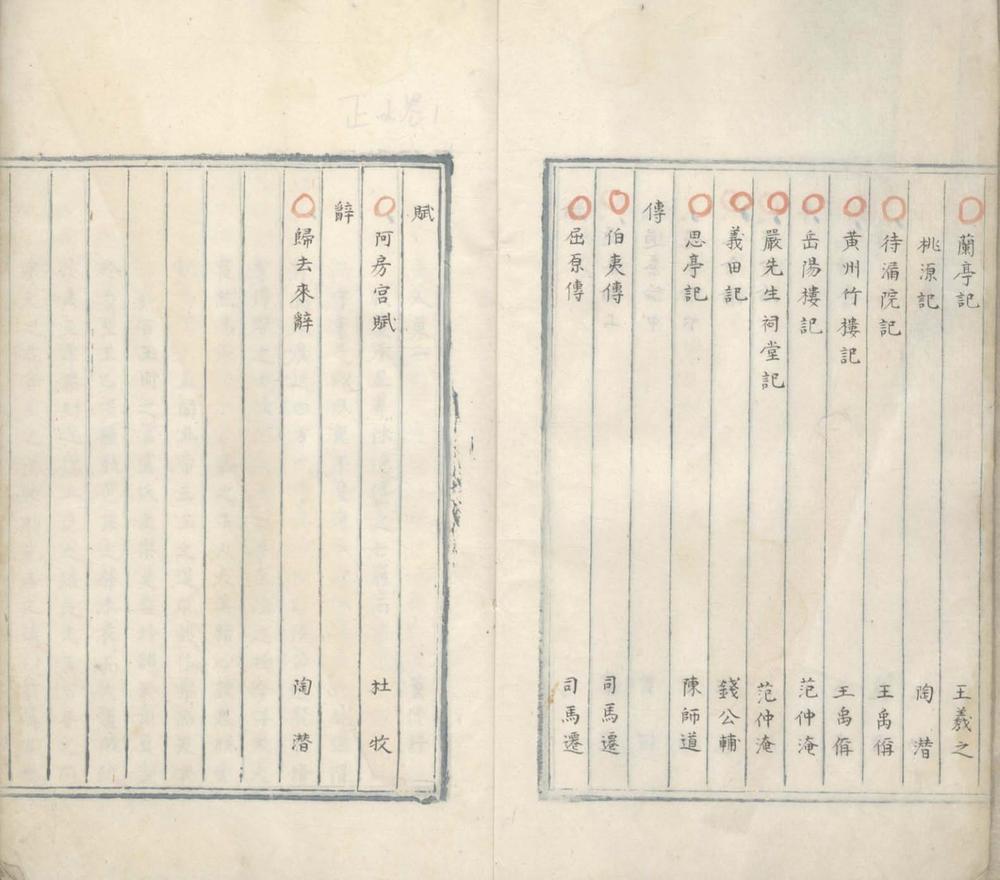 蘭亭記 王羲之
桃源記 陶潛
待漏院記 王禹偁
黃州竹樓記 王禹偁
岳陽樓記 范仲淹
嚴先生祠堂記 范仲淹
義田記 錢公輔
思亭記 陳師道
傳
伯夷傳 司馬遷
屈原傳 司馬遷
賦
阿房宮賦 杜牧
辭
歸去來辭 陶潛